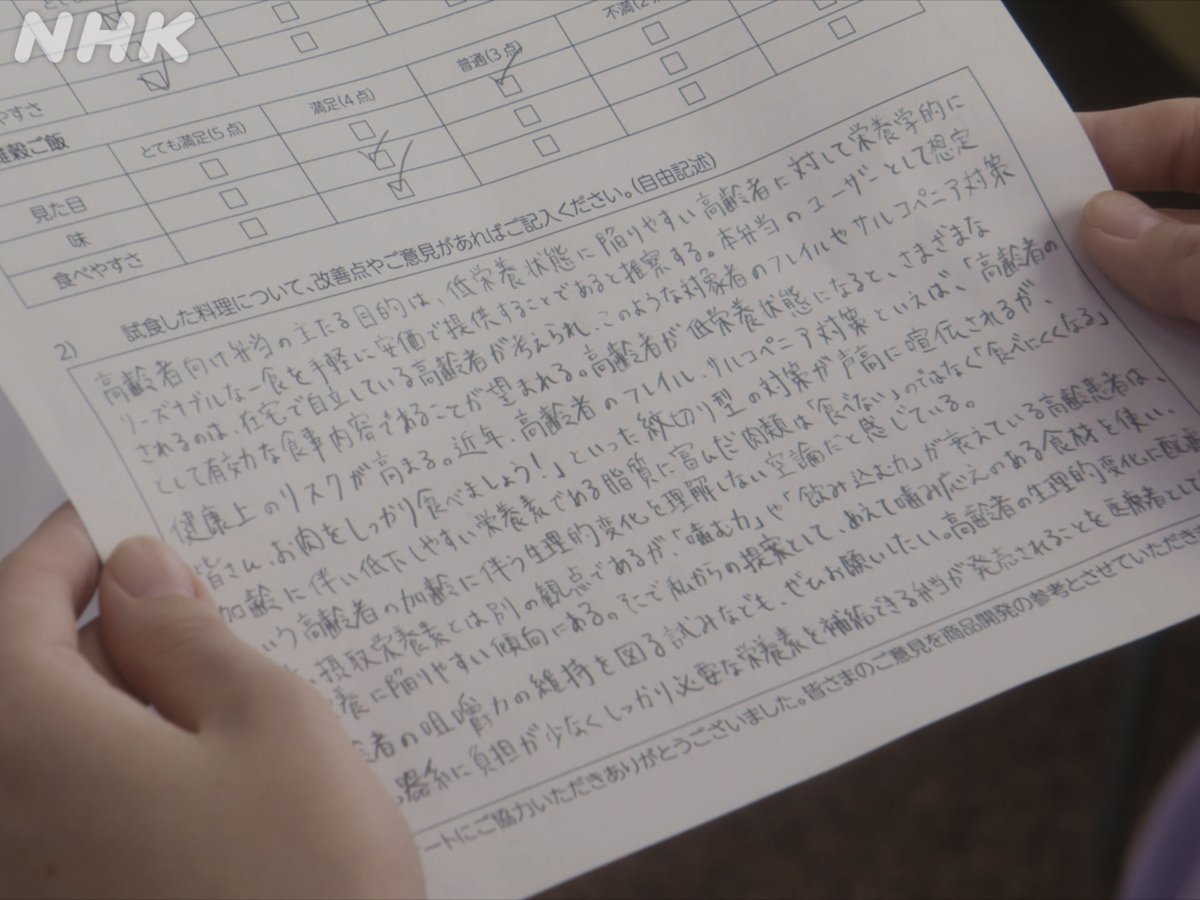 NHK
不満(2
やすさ
雑穀ご飯
とても満足(5点)
満足(4点)
普通(3点)
見た目
味
食べやすさ
2) 試食した料理について、改善点やご意見があればご記入ください。(自由記述)
高齢者向け弁当の主たる目的は、低栄養状態に陥りやすい高齢者に対して栄養学的に
リーズナブルな一食を手軽に安価で提供することであると推察する。本弁当のユーザーとして想定
されるのは、在宅で自立している高齢者が考えられ、このような対象者のフレイルやサルコペニア対策
として有効な食事内容であることが望まれる。高齢者が低栄養状態になると、さまざまな
健康上のリスクが高まる。近年、高齢者のフレイル、サルコペニア対策といえば、「高齢者の
皆さん、お肉をしっかり食べましょう!」といった紋切り型の対策が声高に喧伝されるが、
加齢に伴い低下しやすい栄養素である脂質に富んだ肉類は「食べない」のではなく「食べにくくなる」
いう高齢者の加齢に伴う生理的変化を理解しない空論だと感じている。
、摂取栄養素とは別の観点であるが、「噛む力」や「飲み込む力」が衰えている高齢患者は、
養に陥りやすい傾向にある。そこで私からの提案として、あえて噛み応えのある食材を使い、
者の咀嚼力の維持を図る試みなども、ぜひお願いしたい。高齢者の生理的変化に配慮
器系に負担が少なくしっかり必要な栄養素を補給できる弁当が発売されることを医療者として
ートにご協力いただきありがとうございました。皆さまのご意見を商品開発の参考とさせていただき